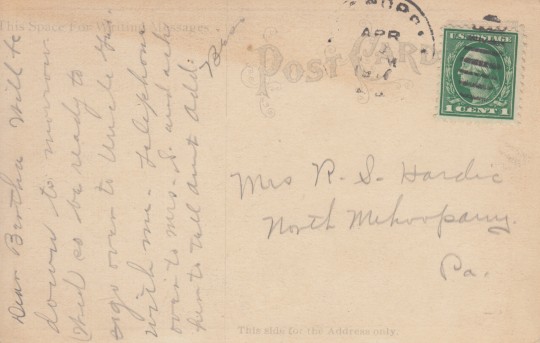 This Space For Writing Messages
Dear Bertha Will be
down to morrow
Wed so be ready to
go over to Uncle
with me. Telephone
over to Mrs. S. and ask
her to tell aunt Add.
POST CARD
APR
U.S. POSTAGE
1 CENT 1
Mrs R. S. Hardic
North Mehoopany.
Pa.
This side for the Address only.